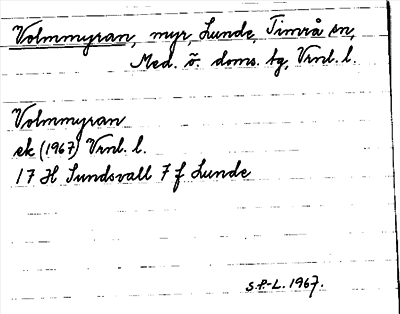 Volmmyran, myr, Lunde, Timrå sn,
Med. ö. doms. tg, Vrnl. l.
Volmmyran
ek (1967) Vrnl. l.
17 H Sundsvall 7 f Lunde
S.P-L. 1967.